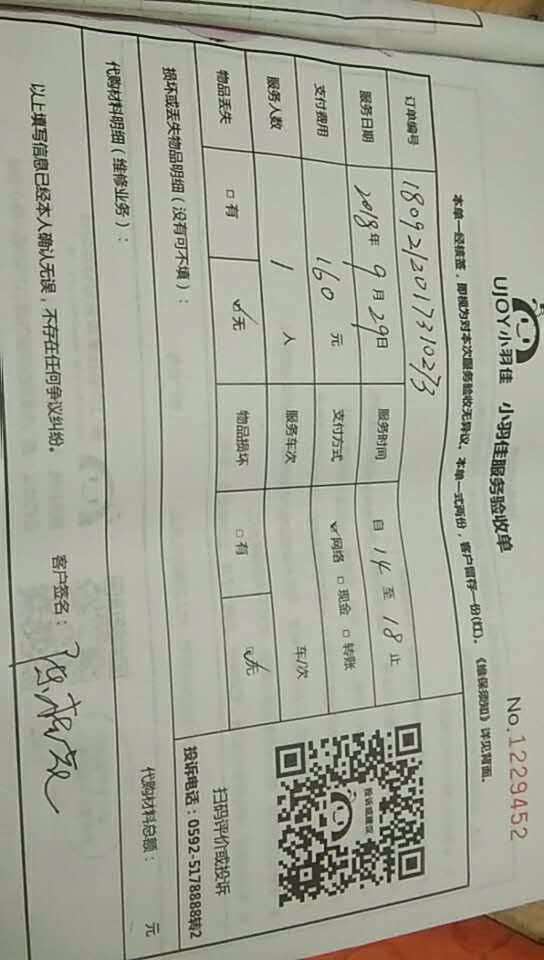 UJOY小羽佳 小羽佳服务验收单
No.1229452
本单一经接签，即视为对本次服务验收无异议。本单一式两份，客户留存一份(红)。《维保须知》详见背面。
订单编号 180921201731023
服务日期 2018年9月29日 服务时间 自 14 至 18 止
支付费用 160 元 支付方式 ☑网络 □现金 □转账
服务人数 1 人 服务车次 车/次
物品丢失 □有 ☑无 物品损坏 □有 ☑无
投诉或建议
扫码评价或投诉
投诉电话：0592-5178888转2
损坏或丢失物品明细（没有可不填）：
代购材料明细（维修业务）： 代购材料总额： 元
以上填写信息已经本人确认无误，不存在任何争议纠纷。 客户签名：